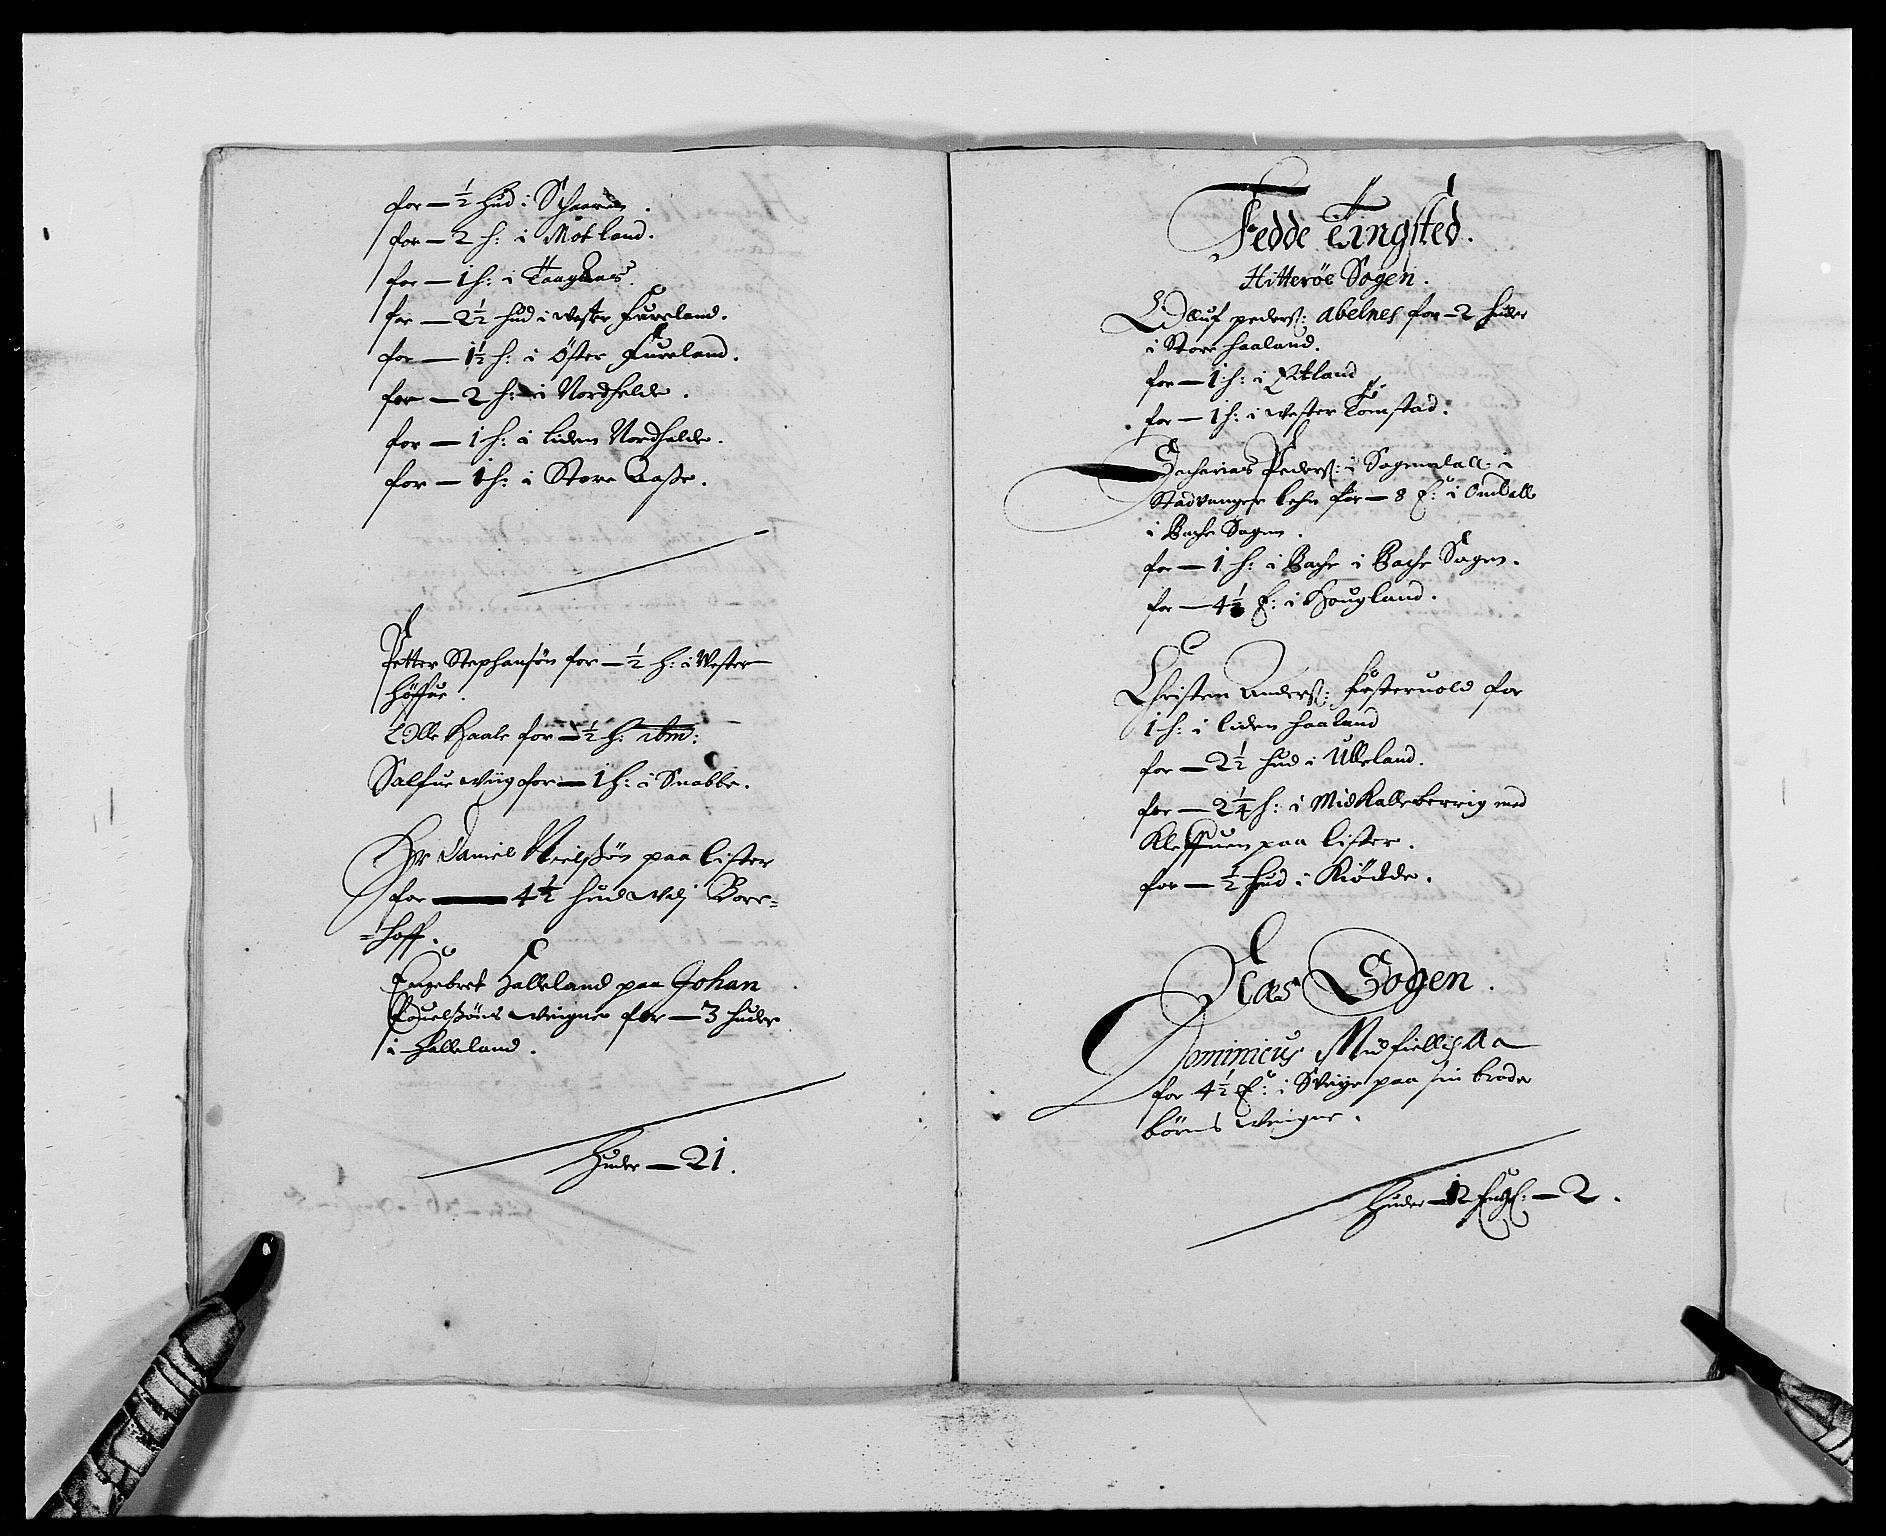 for — ½ hud i Schaaren.
for — 2 h: i Motland.
for — 1 h: i Taagaas.
for — 2½ hud i wester Fureland.
for — 1½ h: i Öster Fureland.
for — 2 h: i Nordhelde.
for — 1 h: i liden Nordhelde.
for — 1 h: i Store Aasse.
Petter Stephansøn for — ½ h: i Wester
høffue.
Olle Haale for — ½ h: ibm:
Salfue wiig for — 1 h: i Snabbe.
Hr Daniel Nielssøn paa lister
for — 4½ hud udj Borr=
=hoff.
Engebret Helleland paa Johan
Pouelssøns weigne for — 3 huder
i Helleland.
Huder — 21.
Fedde Tingsted.
Hitterøe Sogen.
Oluf peders: abelnes for — 2 huder
i Store haaland.
for — 1 h: i Eitland
for — 1 h: i wester Tomstad.
Zacharias Peders: i Sogendall i
Stadvanger lehn for — 8 E: i Omdall
i Bache Sogen.
for — 1 h: i Bache i Bache Sogen.
for — 4½ E: i Hougland.
Christen Anders: Fosteruold for
1 h: i liden haaland
for — 2½ hud i Ulleland.
for — 2¼ h: i Midkalleberrig med
Kleffuen paa lister.
for — ½ hud i Kiödde.
Næs Sogen.
Dominicus Midfiellis Aa
for 4½ E: i Sveige paa sin broder
børns weigne.
Huder — 12 Eng: — 2.